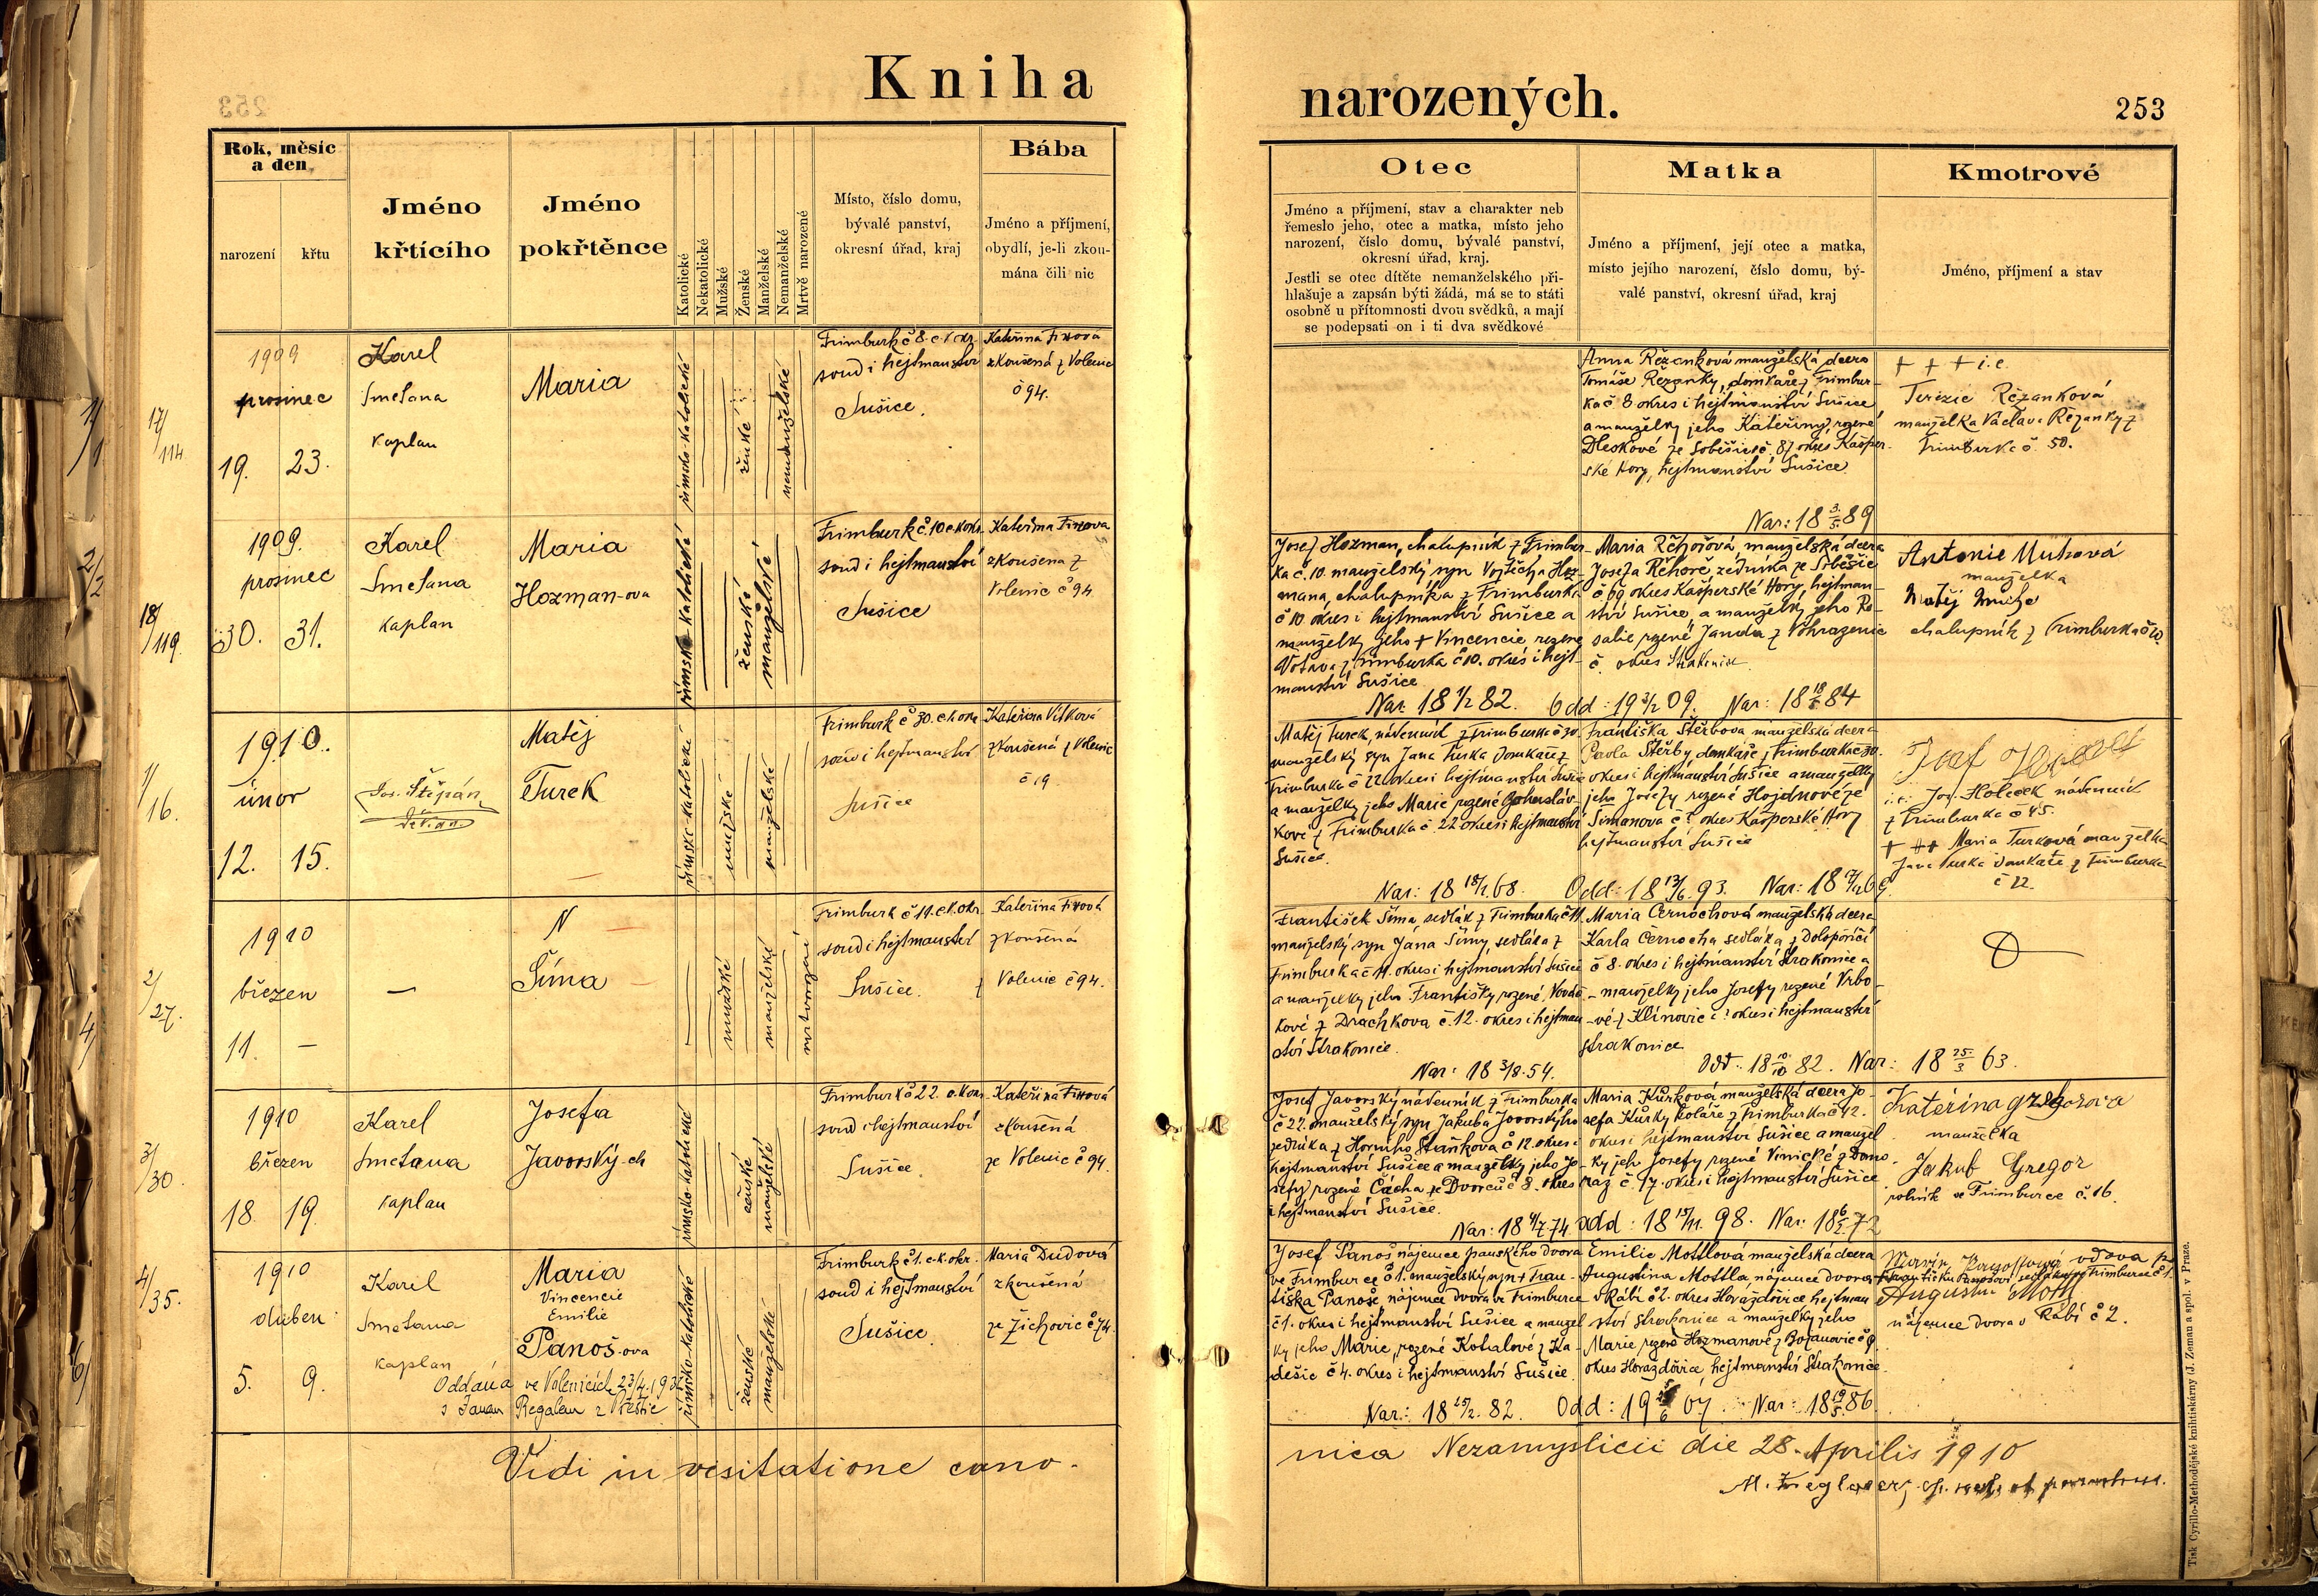 Kniha
narozených.
253
Rok, měsíc
a den
narození
křtu
Jméno
křtícího
Jméno
pokřtěnce
Katolické
Nekatolické
Mužské
Ženské
Manželské
Nemanželské
Mrtvě narozené
Místo, číslo domu,
bývalé panství,
okresní úřad, kraj
Bába
Jméno a příjmení,
obydlí, je-li zkou-
mána čili nic
Otec
Jméno a příjmení, stav a charakter neb
řemeslo jeho, otec a matka, místo jeho
narození, číslo domu, bývalé panství,
okresní úřad, kraj.
Jestli se otec dítěte nemanželského při-
hlašuje a zapsán býti žádá, má se to státi
osobně u přítomnosti dvou svědků, a mají
se podepsati on i ti dva svědkové
Matka
Jméno a příjmení, její otec a matka,
místo jejího narození, číslo domu, bý-
valé panství, okresní úřad, kraj
Kmotrové
Jméno, příjmení a stav
1/1
17/114
1909
prosinec
19. 23.
Karel
Smetana
kaplan
Maria
římsko-katolické
ženské
nemanželské
Frimburk č 8. c. k. okr.
soud i hejtmanství
Sušice.
Kateřina
zkoušená z Volenic
č 94.
Anna Řezanková manželská dcera
Tomáše Řezanky, domkaře z Frimbur-
ka č 8 okres i hejtmanství Sušice
a manželky jeho Kateřiny, rozené
Dleskové ze Soběšic č. 87 okres Kašper-
ské Hory, hejtmanství Sušice
Nar: 18 3/5. 89
+ + + i. e.
Terezie Řezanková
manželka Václava Řezanky z
Frimburka č. 50.
2/2
18/119.
1909.
prosinec
30. 31.
Karel
Smetana
kaplan
Maria
Hozman-ova
římsko-katolické
ženské
manželské
Frimburk č. 10 c. k. okr.
soud i hejtmanství
Sušice
Kateřina
zkoušena z
Volenic č 94
Josef Hozman, chalupník z Frimbur-
ka č. 10. manželský syn Vojtěcha Hoz-
mana, chalupníka z Frimburka
č 10 okres i hejtmanství Sušice a
manželky jeho + Vincencie rozené
Votava z Frimburka č 10. okres i hejt-
manství Sušice
Nar: 18 1/2 82. Odd: 19 09. Nar: 18 84
Maria Řehořová, manželská dcera
Josefa Řehoře, zedníka ze Soběšic
č 69 okres Kašperské Hory, hejtman-
ství Sušice, a manželky jeho Ro-
salie rozené Janda z
č. okres Strakonice
Antonie
manželka
Matěj
chalupník z Frimburka č 10.
1/16.
1910.
únor
12. 15.
Jos. Štěpán
děkan
Matěj
Turek
římsko-katolické
mužské
manželské
Frimburk č 30. c. k. okr.
soud i hejtmanství
Sušice
Kateřina Vítková
zkoušená z Volenic
č 19
Matěj Turek nádenník z Frimburka č 30.
manželský syn Jana Turka domkaře z
Frimburka č 22 okres i hejtmanství Sušice
a manželky jeho Marie rozené
kové z Frimburka č 22 okres i hejtmanství
Sušice.
Nar: 18 18/1. 68. Odd: 18 13/6. 93. Nar: 18
Františka Štěrbova manželská dcera
Pavla Štěrby, domkaře z Frimburka č 30.
okres i hejtmanství Sušice a manželky
jeho Josefy rozené Hojdnové ze
Šimanova č ? okres Kašperské Hory
hejtmanství Sušice
Josef
i. e: Jos. Holeček nádenník
z Frimburka č 45.
+ ++ Maria Turková manželka
Jana Turka domkaře z Frimburka
č 22.
2/27.
4/
1910
březen
11. —
—
N
Šíma
mužské
manželské
mrtvorozené
Frimburk č 11. c. k. okr.
soud i hejtmanství
Sušice.
Kateřina
zkoušená
z Volenic č 94.
František Šíma, sedlák z Frimburka č 11
manželský syn Jána Šímy, sedláka z
Frimburka č 11. okres i hejtmanství Sušice
a manželky jeho Františky rozené Vondš-
kové z Drachkova č. 12. okres i hejtman-
ství Strakonice.
Nar: 18 3/8. 54. Odd: 18 10/10 82. Nar: 18 25/3 63.
Maria Černochová manželská dcera
Karla Černocha sedláka z
č 8. okres i hejtmanství Strakonice a
manželky jeho Josefy rozené Vrbo-
-vé z Klínovic č ? okres i hejtmanství
Strakonice
3/30.
1910
březen
18. 19.
Karel
Smetana
kaplan
Josefa
Javorský-ch
římsko-katolické
ženské
manželské
Frimburk č 22. c. k. okr.
soud i hejtmanství
Sušice.
Kateřina
zkoušená
ze Volenic č 94.
Josef Javorský nádenník z Frimburka
č 22. manželský syn Jakuba Javorskýho
zedníka z Horního Staňkova č 12. okres i
hejtmanství Sušice a manželky jeho Jo-
sefy rozené Cácha ze Dvorců č 8. okres
i hejtmanství Sušice.
Nar: 18 4/7 74 Odd: 18 15/11. 98. Nar: 18 6/2. 72
Maria Kůrková manželská dcera Jo-
sefa Kůrky koláře z Frimburka č 42.
okres i hejtmanství Sušice a manžel-
ky jeho Josefy rozené Vinické z Domo-
raz č. 17. okres i hejtmanství Sušice
Kateřina
manželka
Jakub Gregor
rolník ve Frimburce č. 16.
4/35.
6/
1910
duben
5. 9.
Karel
Smetana
kaplan
Maria
Vincencie
Emilie
Panoš-ova
Oddána ve Volenicích
s Janem Regalem z
římsko-katolické
ženské
manželské
Frimburk č 1. c. k. okr.
soud i hejtmanství
Sušice
Maria Dudová
zkoušená
ze Žichovic č 74.
Josef Panoš nájemce panského dvora
ve Frimburce č 1. manželský syn + Fran-
tiška Panoše, nájemce dvora ve Frimburce
č 1. okres i hejtmanství Sušice a manžel-
ky jeho Marie, rozené Kotalové z Ka-
dešic č 4. okres i hejtmanství Sušice.
Nar: 18 25/2. 82. Odd: 19 07. Nar: 18 19/5. 86.
Emilie Mottlová manželská dcera
Augustina Mottla, nájemce dvora
v Rábí č 2. okres Horažďovice hejtman-
ství Strakonice a manželky jeho
Marie rozené Hozmanové z Bojanovic č 9
okres Horažďovice, hejtmanství Strakonice.
vdova p.
Františku Panošovi ve Frimburce č 1.
Augustin
nájemce dvora v Rábí č 2.
Vidi in visitatione cano-
nica Nezamyslicii die 28. Aprilis 1910
Tisk Cyrillo-Methodějské knihtiskárny (J. Zeman a spol. v Praze.